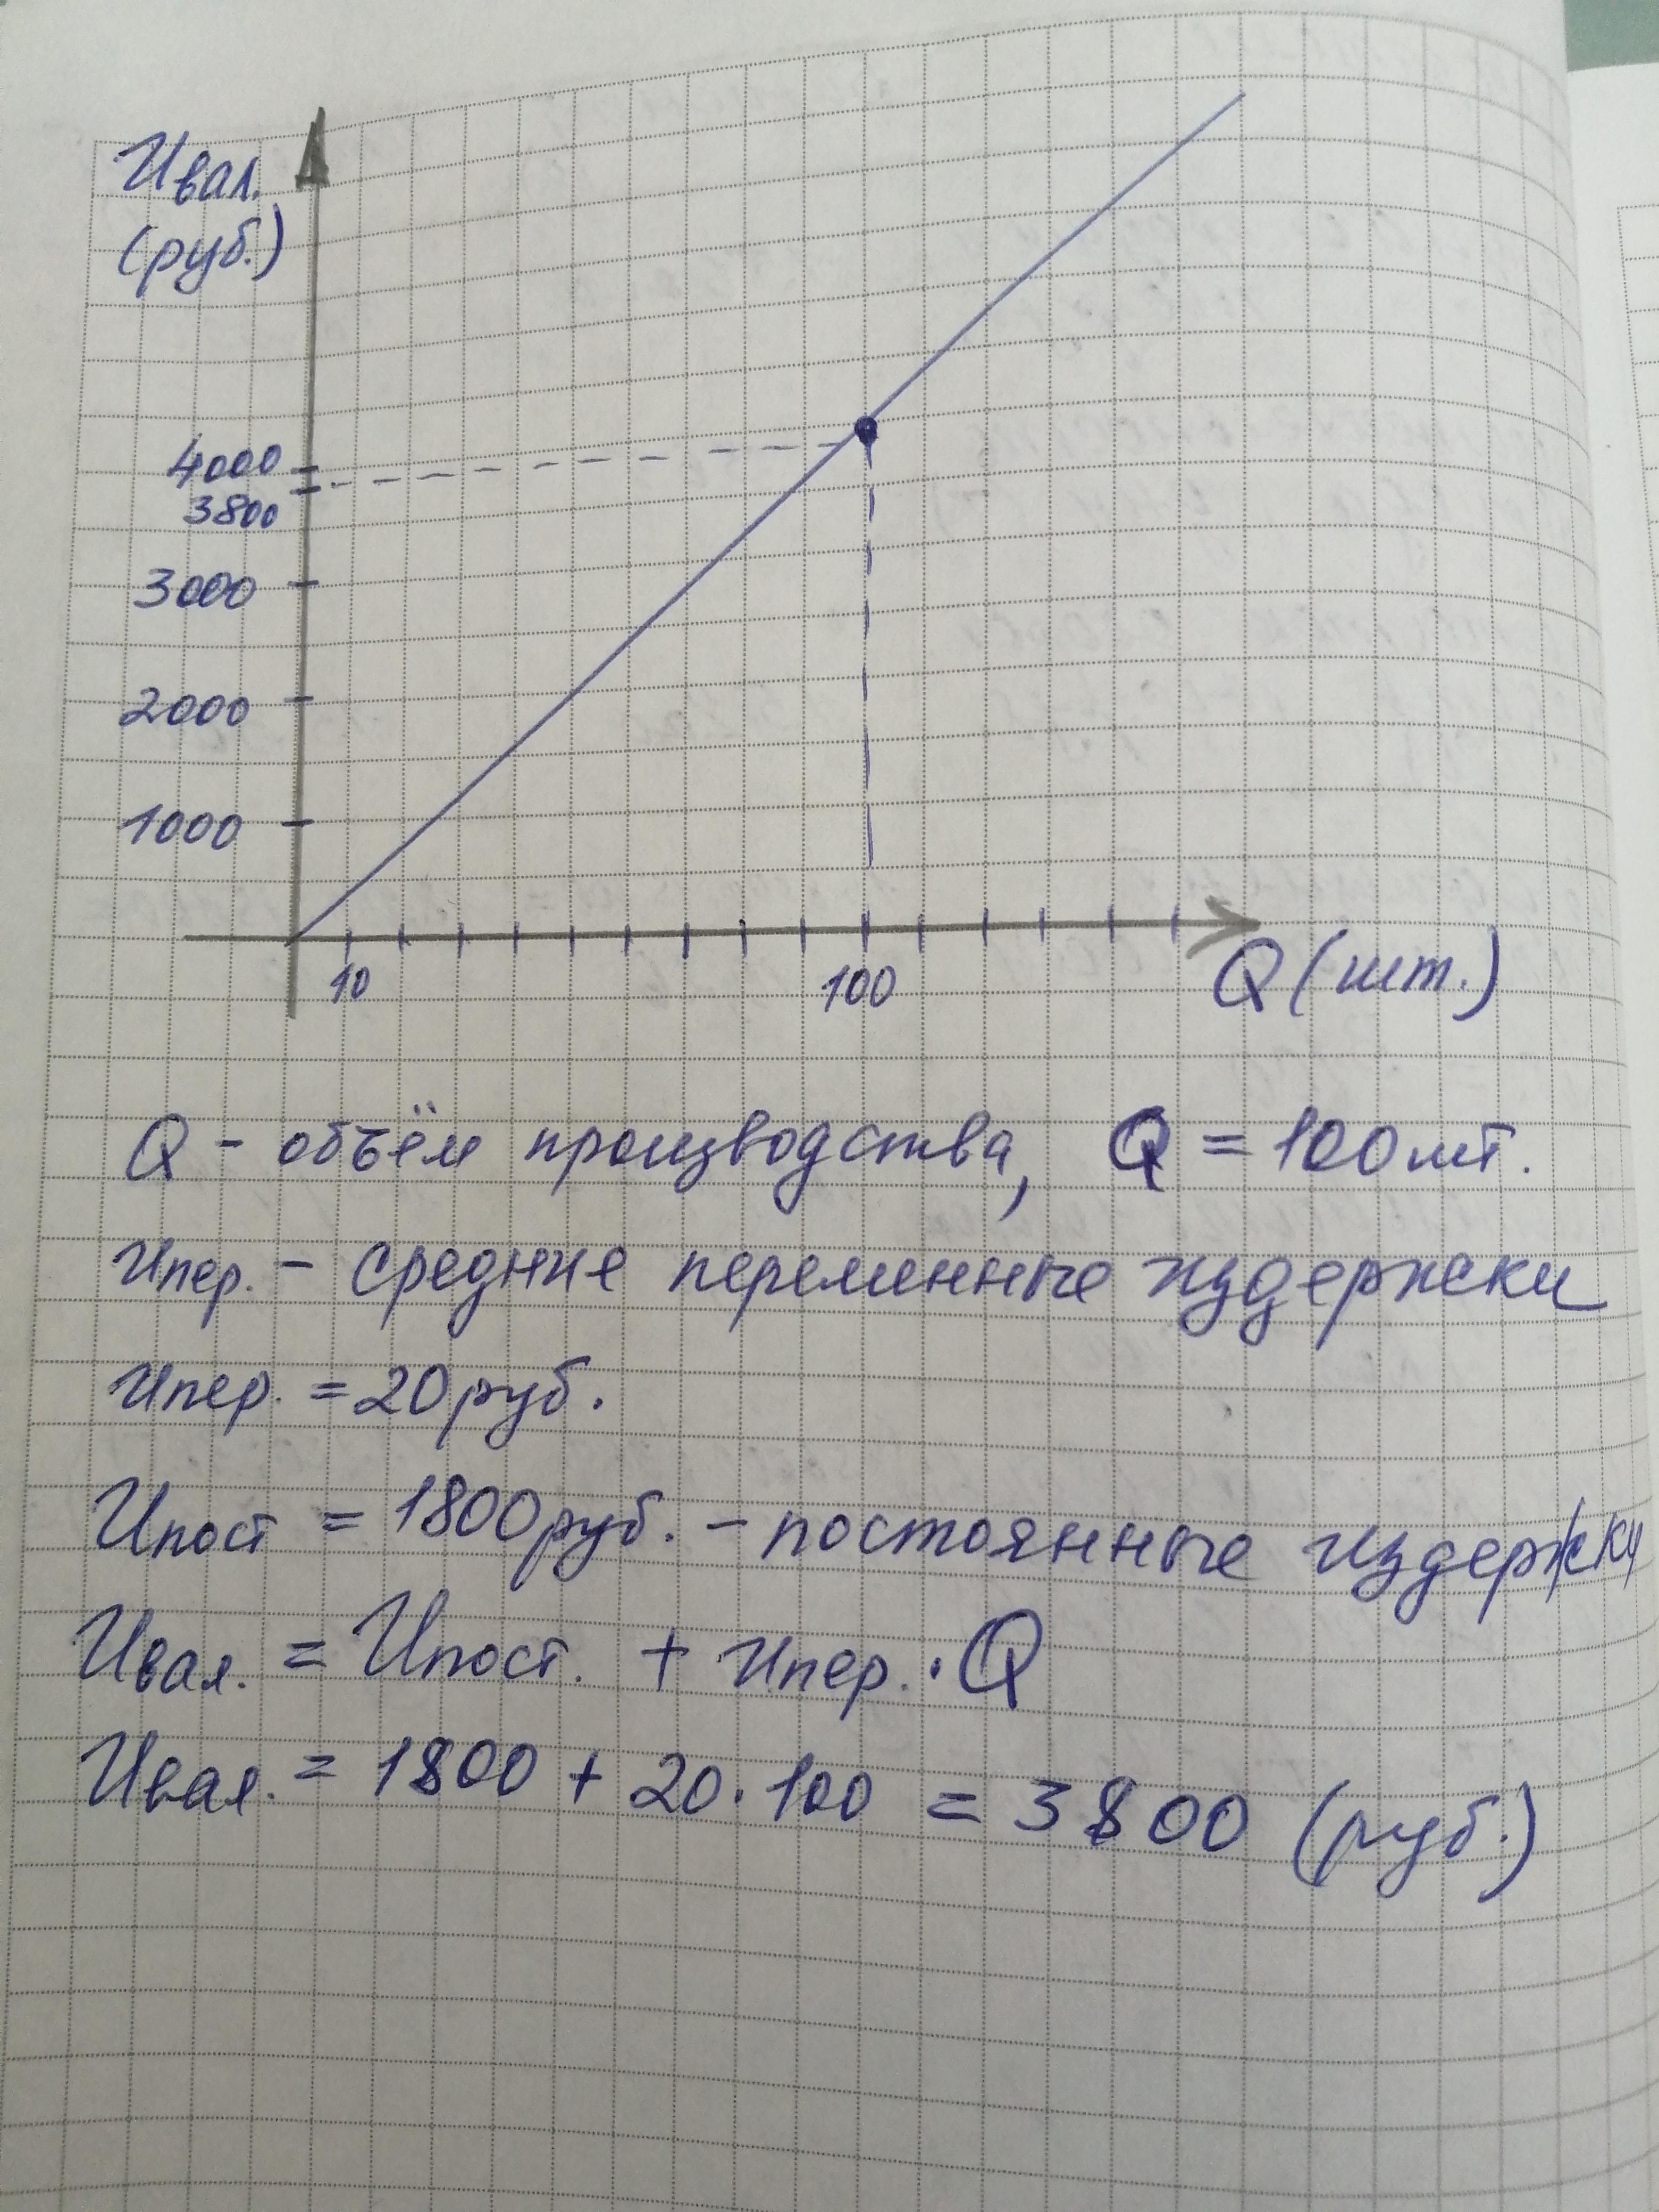 Ивал.
(руб.)
4000
3800
3000
2000
1000
10
100
Q (шт.)
Q - объём производства, Q = 100 шт.
ипер. - средние переменные издержки
ипер. = 20 руб.
Ипост = 1800 руб. - постоянные издержки
Ивал. = Ипост. + ипер. · Q
Ивал. = 1800 + 20 · 100 = 3800 (руб.)